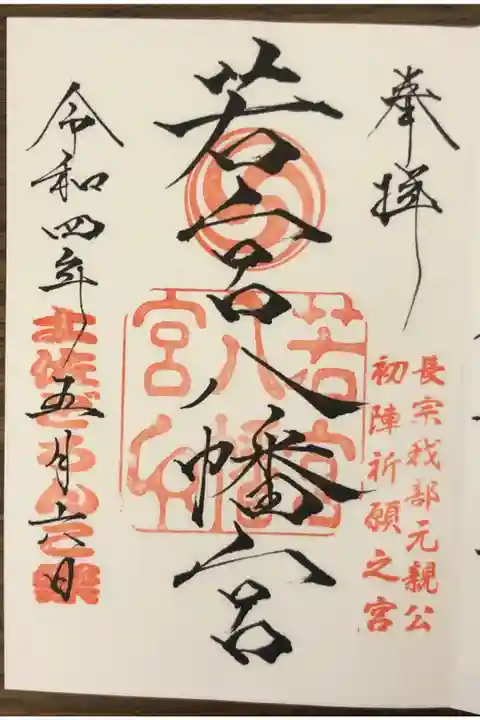 奉拝
長宗我部元親公
初陣祈願之宮
若宮八幡宮
若宮八幡宮印
令和四年五月六日
土佐どろんこ祭